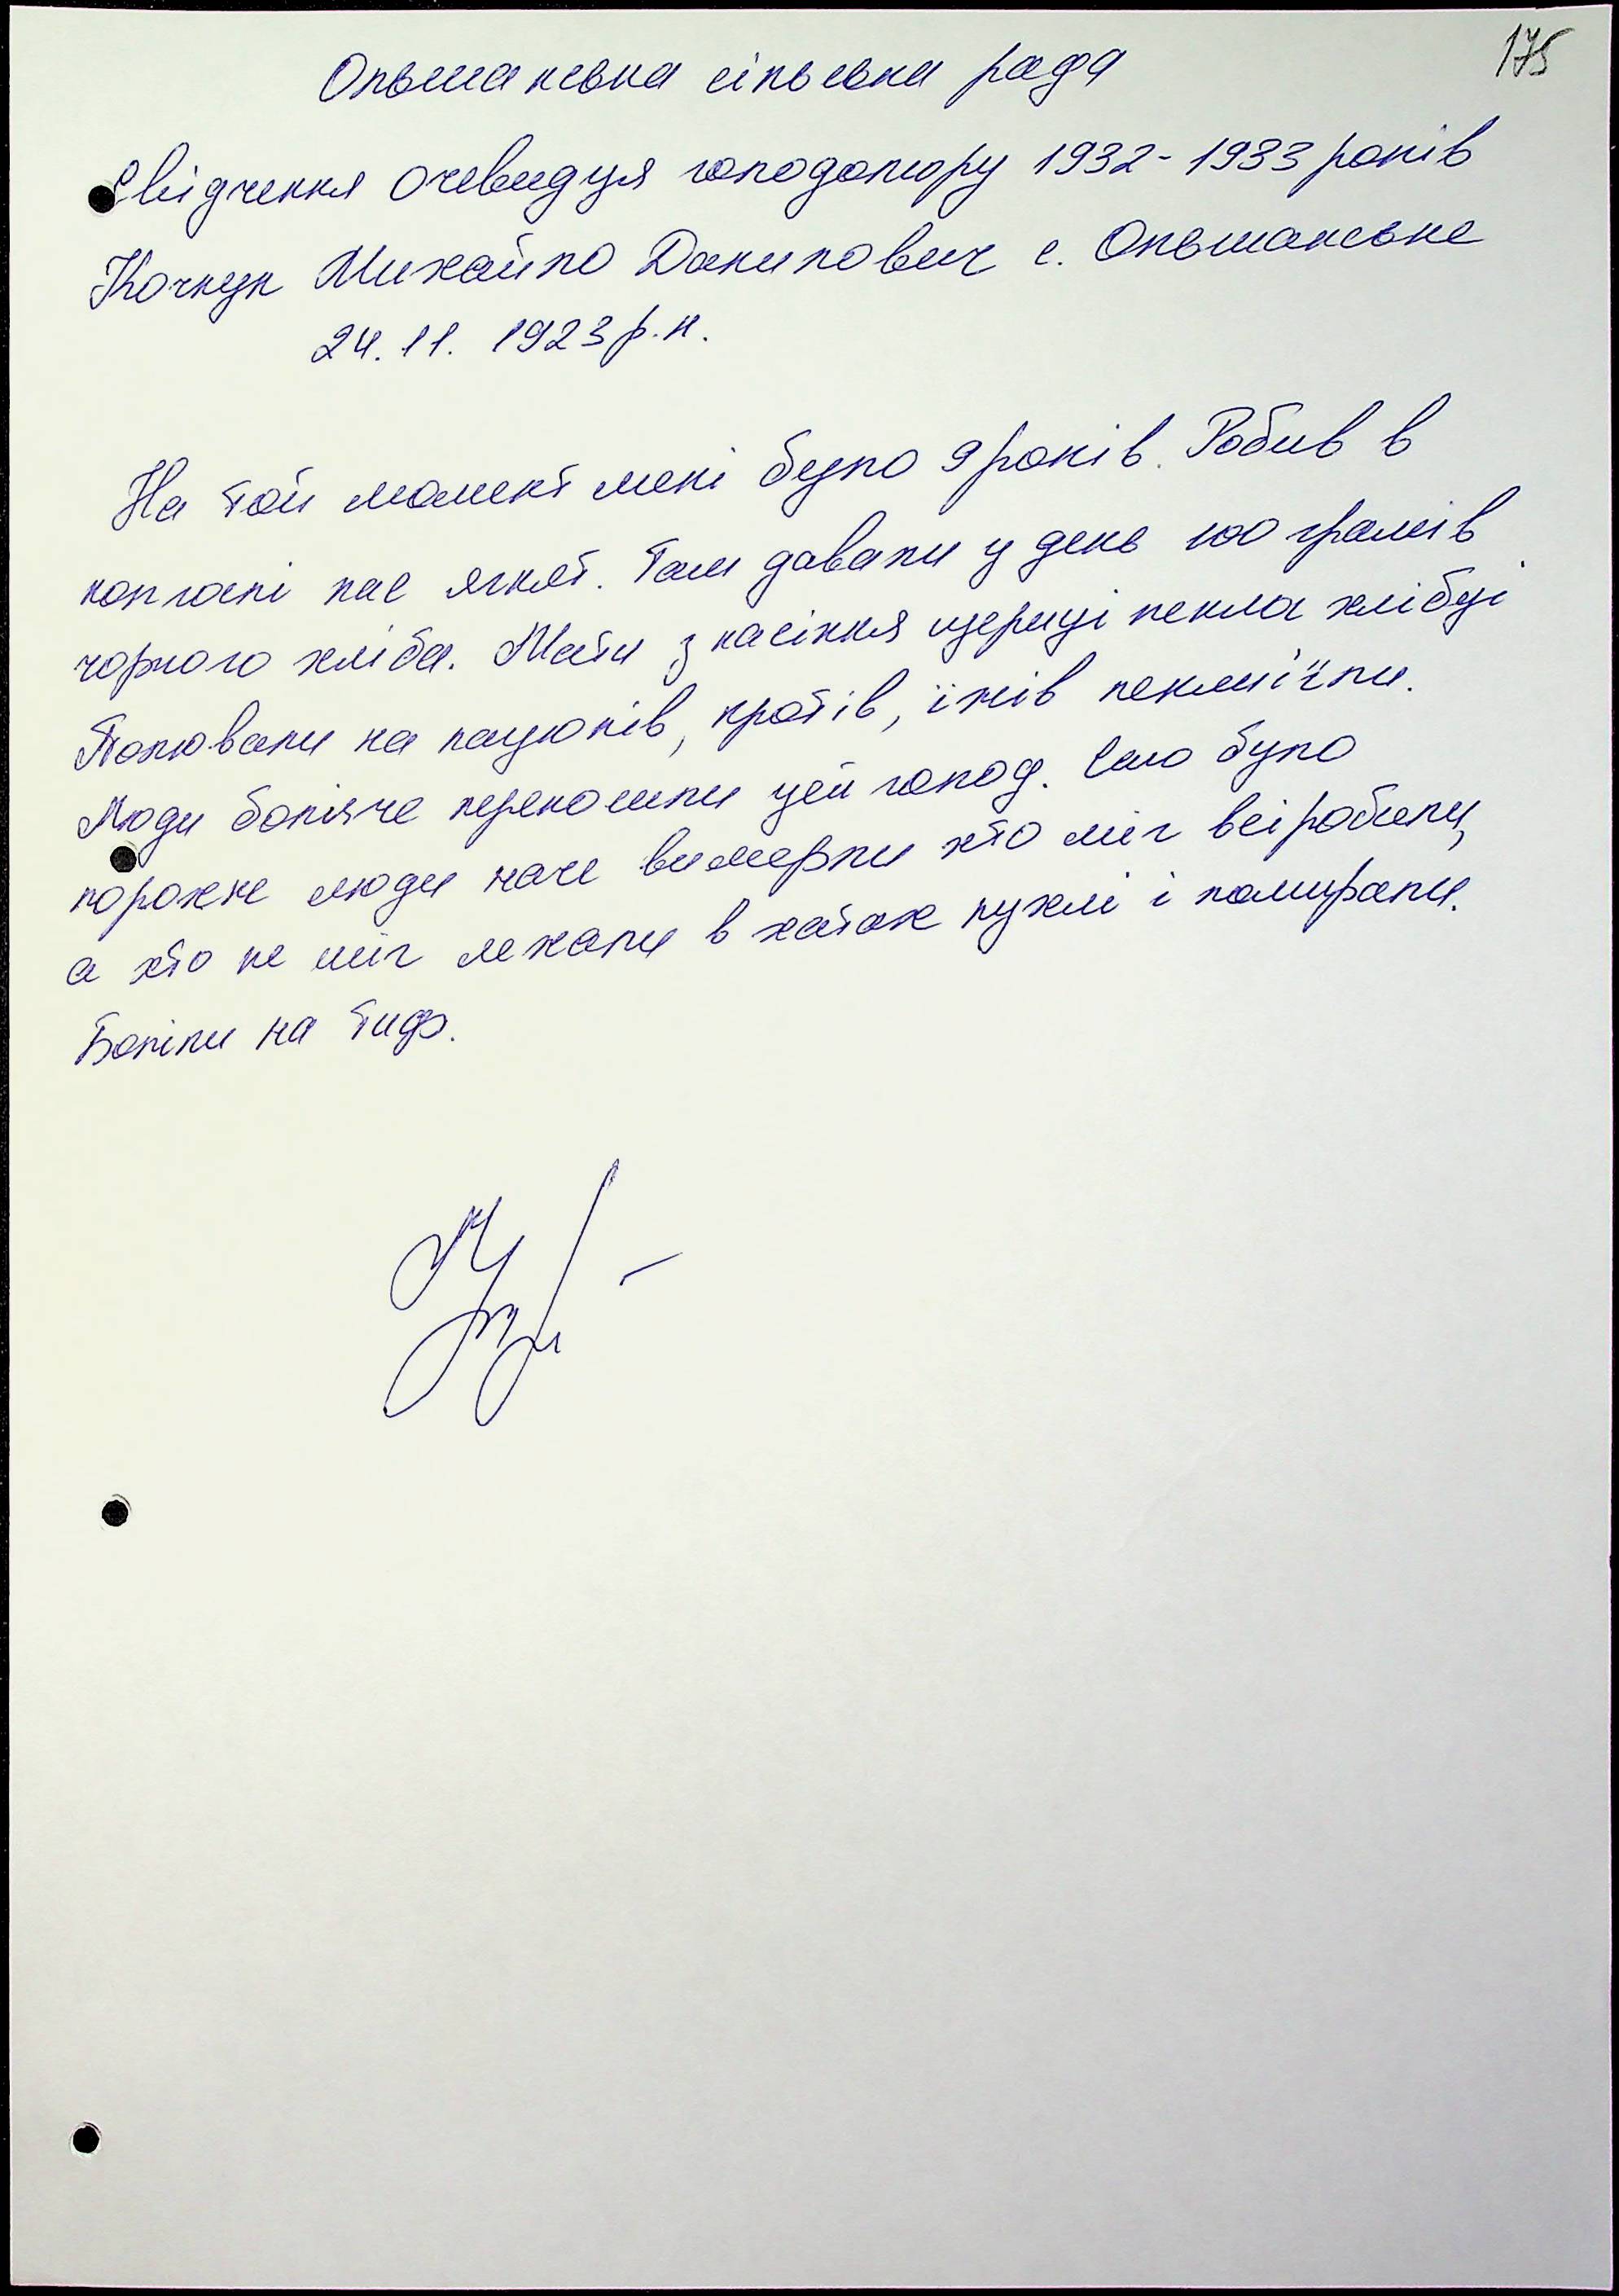 175
Ольшанська сільська рада
Свідчення очевидця голодомору 1932-1933 років
Михайло Данилович с. Ольшанське
24.11. 1923 р.н.
На той момент мені було 9 років. Робив в
колгоспі пас ягнят. Там давали у день 100 грамів
чорного хліба. Мати з насіння щериці пекла хлібці
Полювали на пацюків, кротів, їжів пекли їли.
Люди боляче переносили цей голод. Село було
порожнє люди наче вимерли хто міг всі робили,
а хто не міг лежали в хатах пухлі і помирали.
Боліли на тиф.